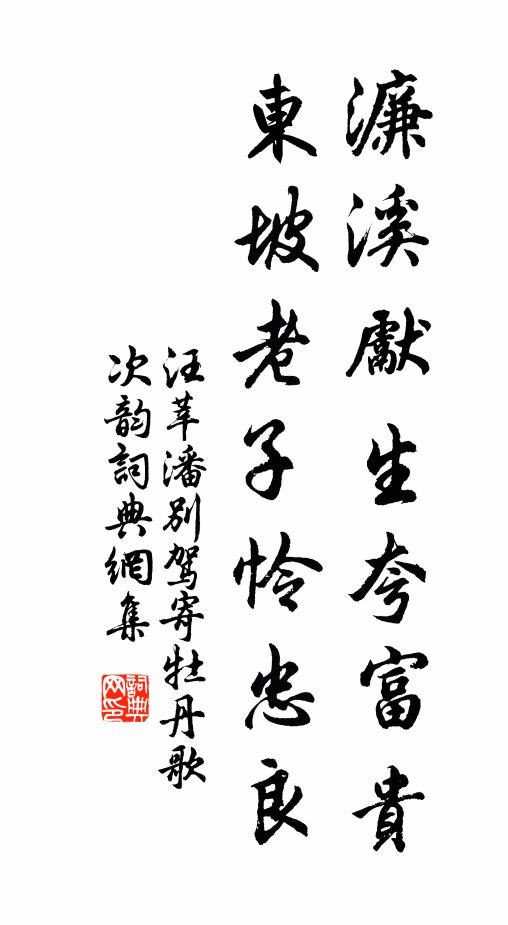 濂溪獻生夸富貴
東坡老子怜忠良
汪莘潘别駕寄牡丹歌
次韵詞典網集
詞典网印